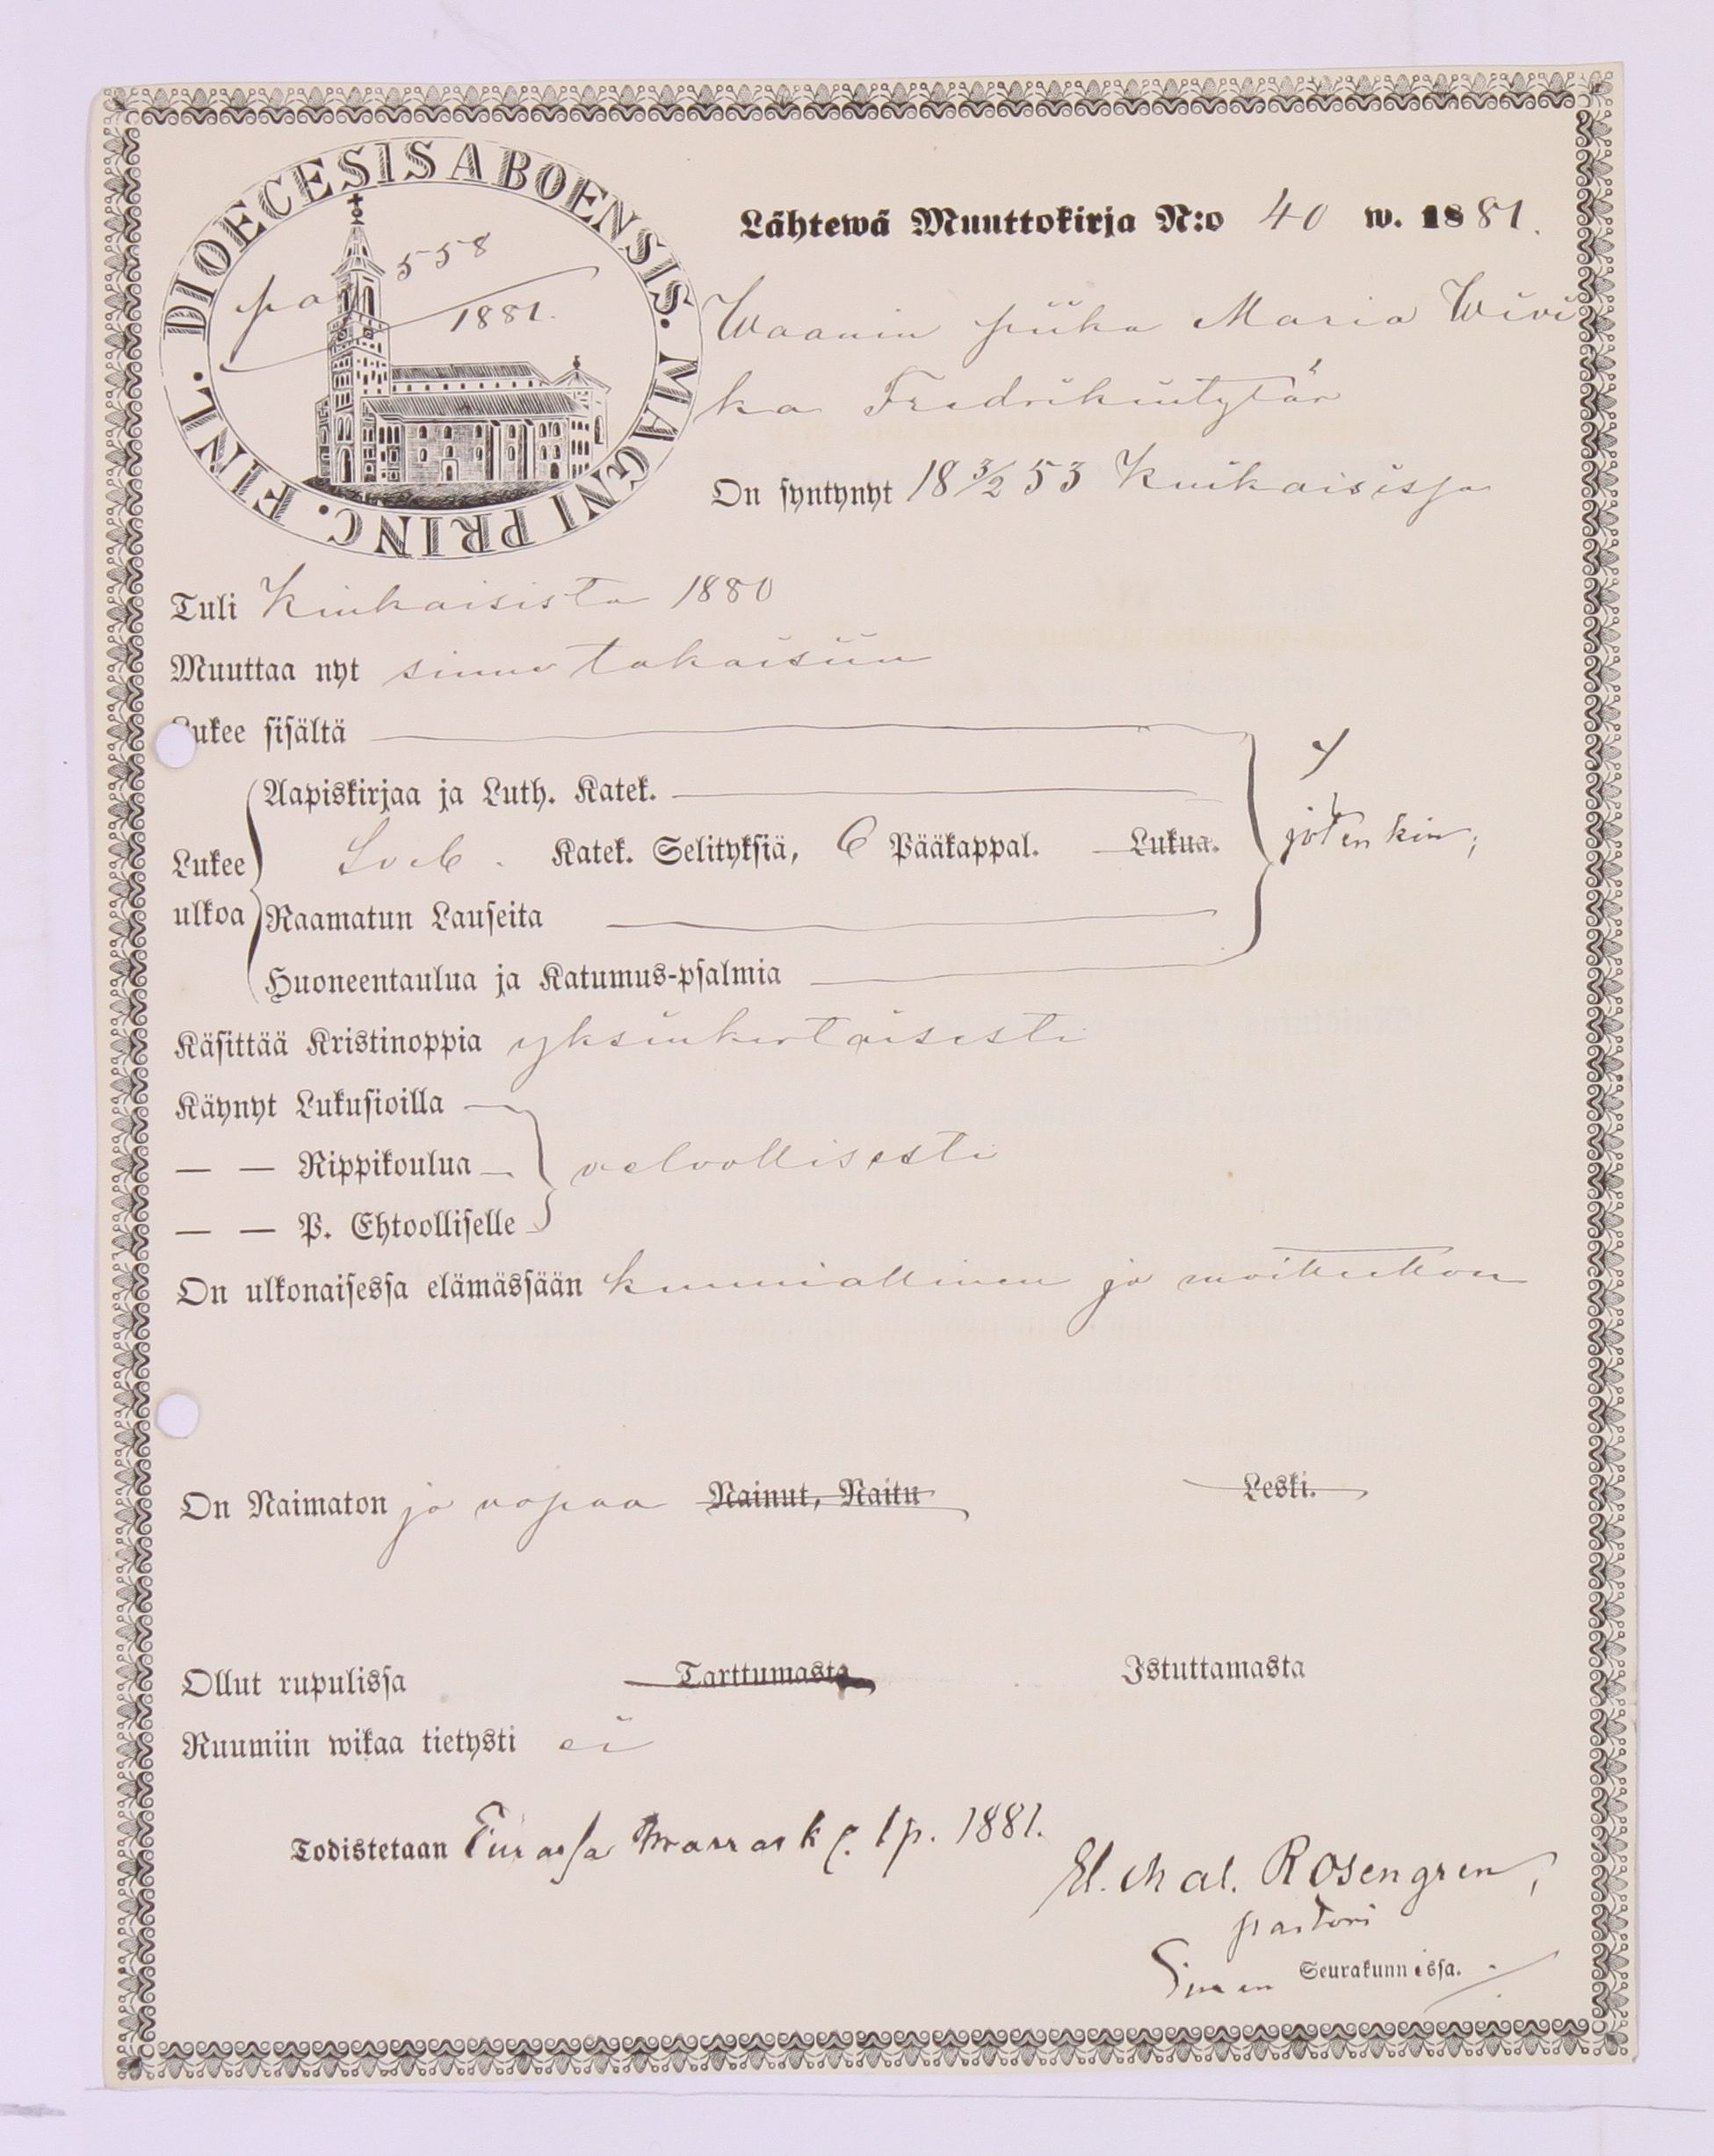 DIOECESIS ABOENSIS. MAGNI PRINC. FINL.
pag 558
1881.
Lähtewä Muuttokirja N:o 40 w. 1881.
Waanin piika Maria Wivi
ka Fredrikintytär
On syntynyt 18 3/2 53 Kiukaisissa
Tuli Kiukaisista 1880
Muuttaa nyt sinne takaisiin
Lukee sisältä
Aapiskirjaa ja Luth. Katek.
Lukee Katek. Selityksiä, 6 Pääkappal. Lukua. jotenkin;
ulkoa Raamatun Lauseita
Huoneentaulua ja Katumus-psalmia
Käsittää Kristinoppia yksinkertaisesti
Käynyt Lukusioilla
— — Rippikoulua velvollisesti
— — P. Ehtoolliselle
On ulkonaisessa elämässään kunniallinen ja moitteetton
On Naimaton ja vapaa Nainut, Naitu Leski.
Ollut rupulissa Tarttumasta Istuttamasta
Ruumiin wikaa tietysti ei
Todistetaan Eurassa marrask. 1 p. 1881.
Rosengren,
pastori
Euran Seurakunnissa.